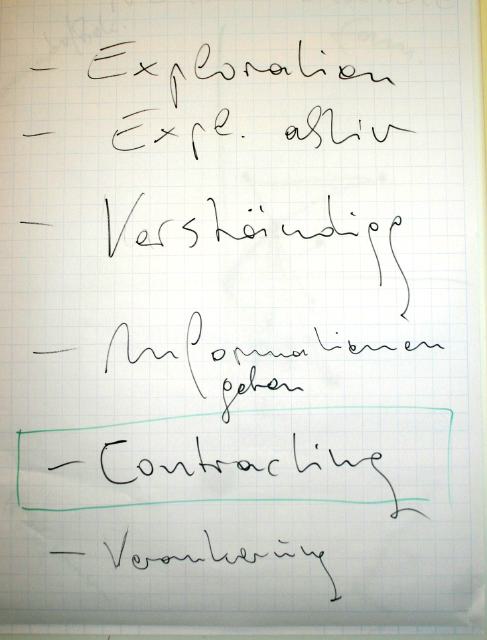 - Exploration
- Expl. aktiv
- Verständigg
- Informationen
geben
- Contracting
- Verankerung